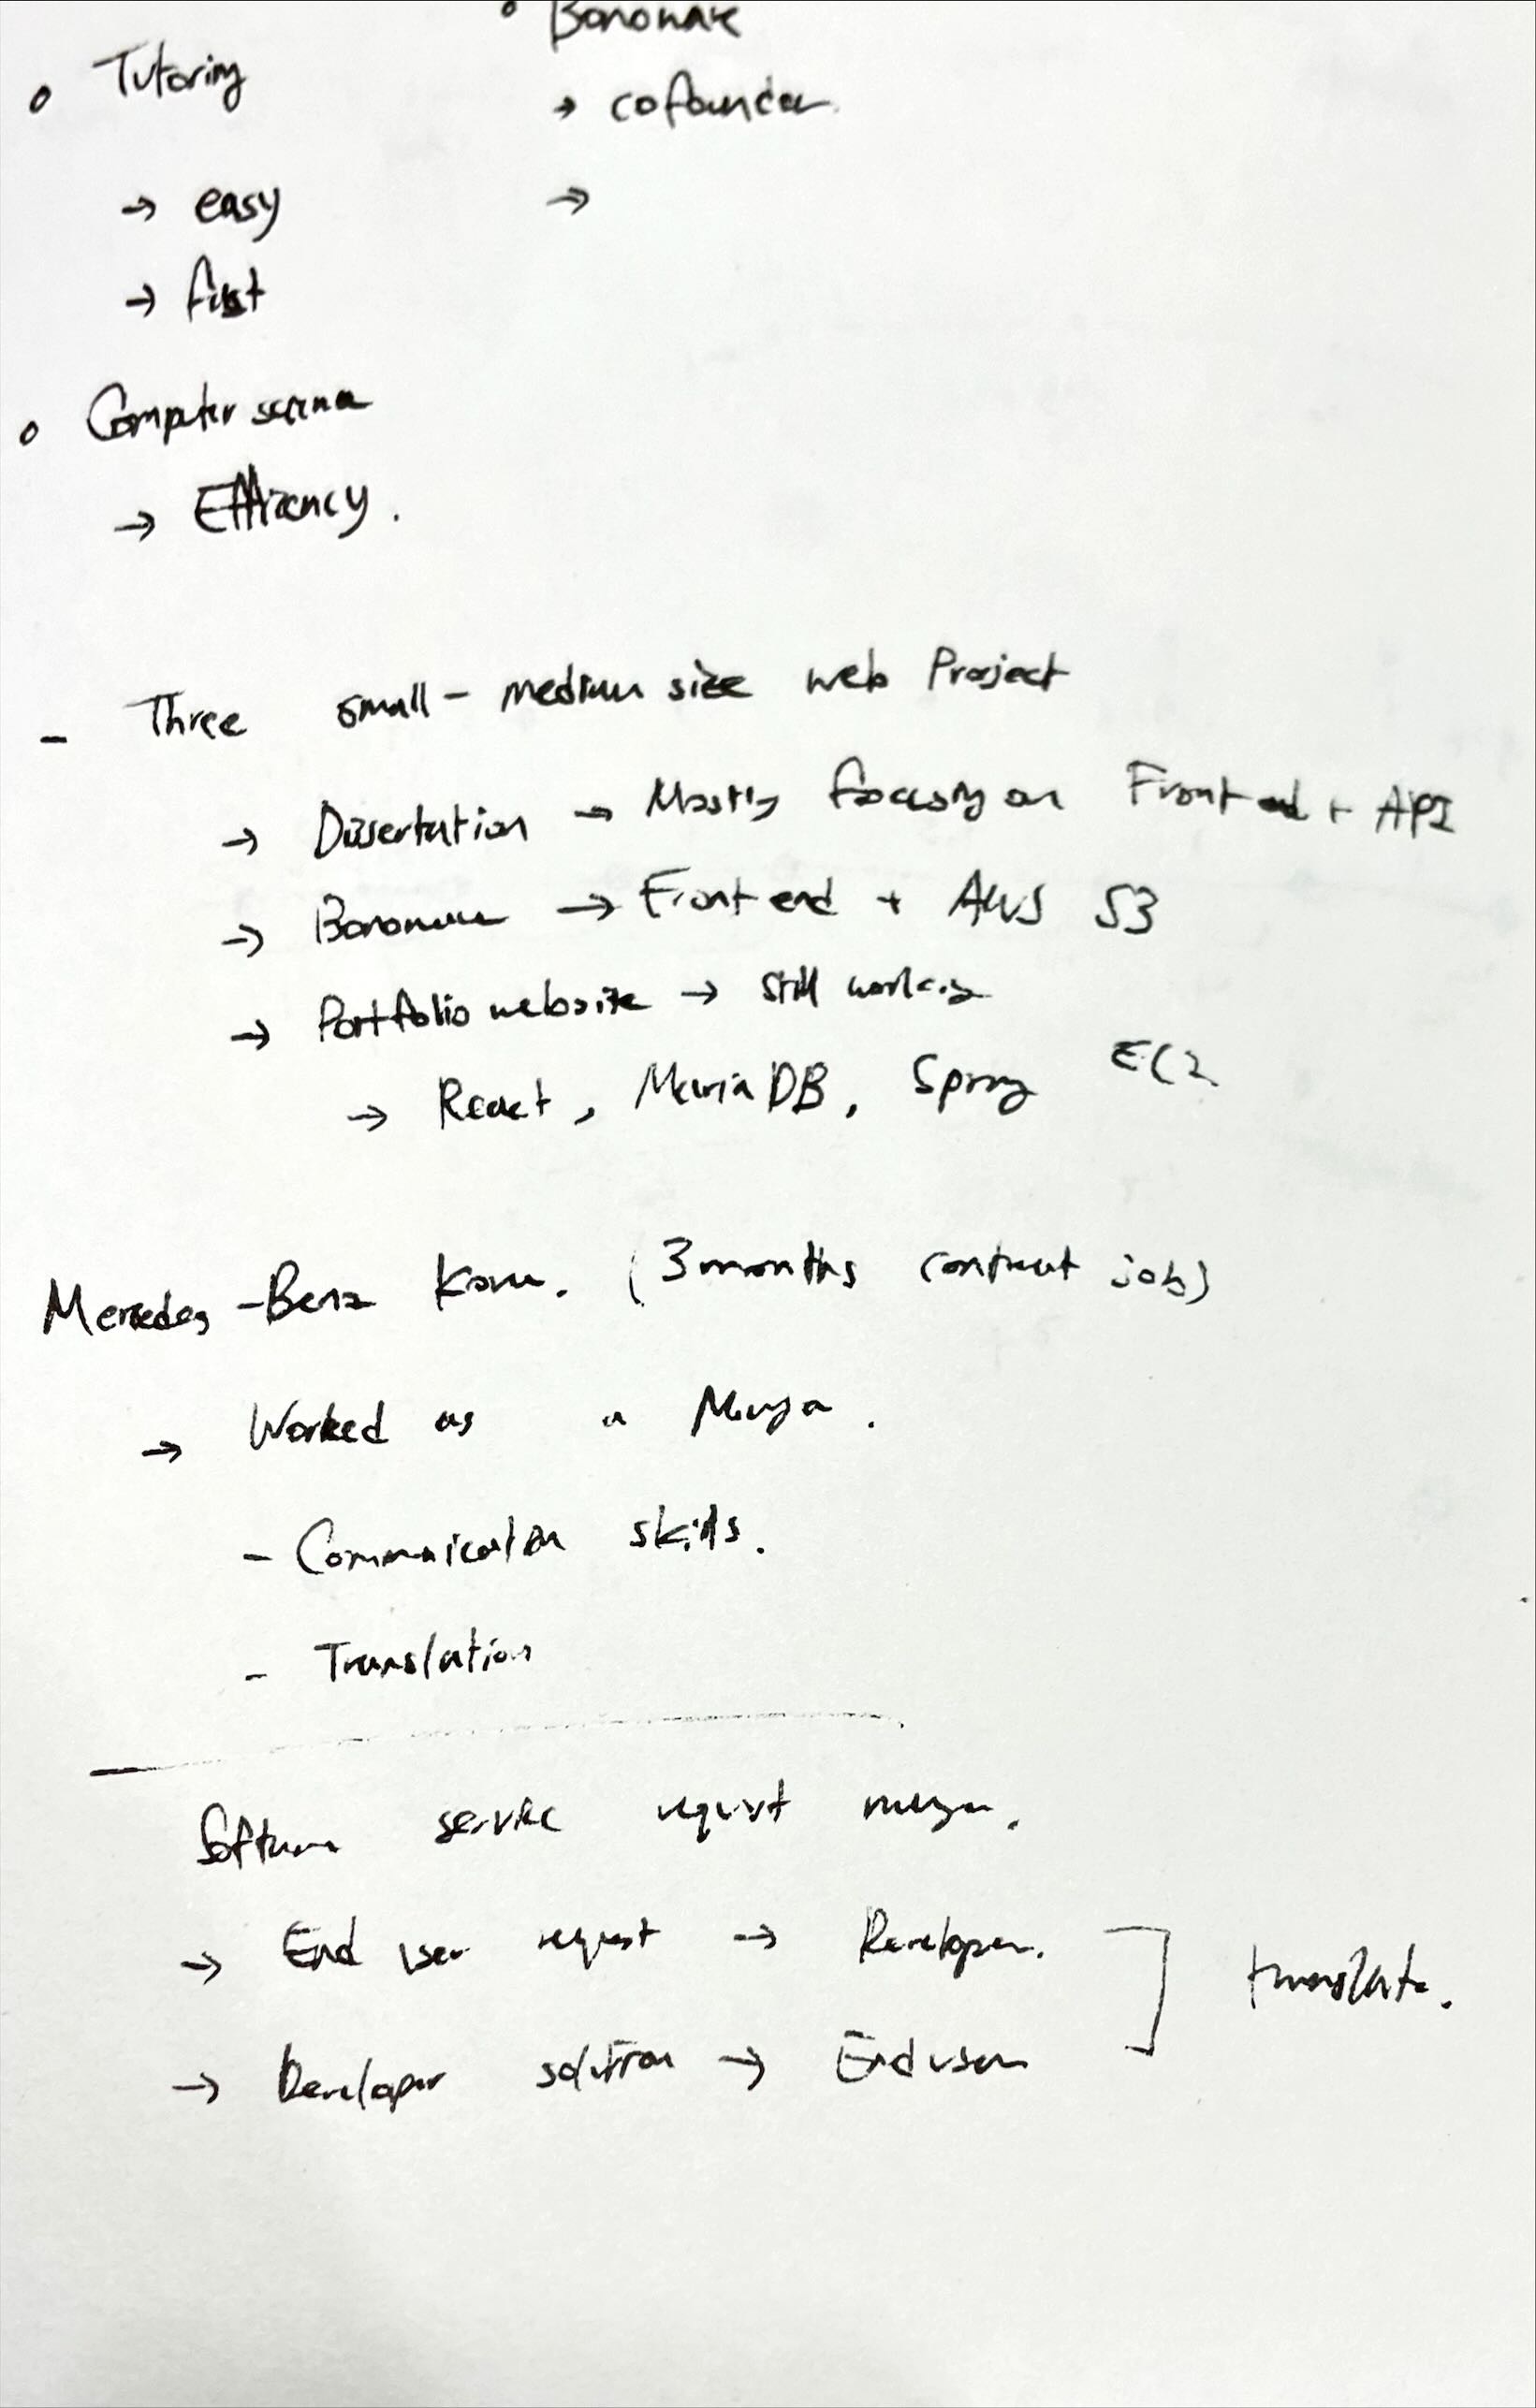 Tutoring
→ easy
→ fast
Computer science
→ Efficiency.
• Bonomak
→ cofounder
→
- Three small - medium size web Project
→ Dissertation → Mostly focusing on Front end + API
→ → Front end + AWS S3
→ Portfolio website → still working
→ React, MariaDB, Spring EC2
Mercedes-Benz Korea. (3 months contract job)
→ Worked as a
- Communication skills.
- Translation
Software service request
→ End user request → Developer.
→ Developer solution → End user
translate.